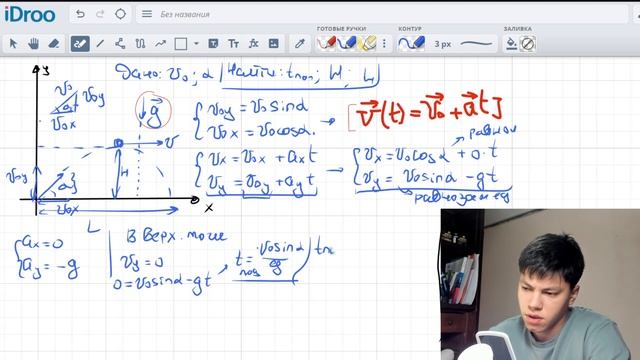 iDroo
Без названия
ГОТОВЫЕ РУЧКИ
КОНТУР
ЗАЛИВКА
3 px
Дано: v₀; α | Найти: tпол; H; L
y
v₀
v₀y
α
v₀x
g⃗
{ v₀y = v₀ sinα
v₀x = v₀ cosα
→ [v⃗(t) = v⃗₀ + a⃗t]
v
H
v₀y
α
v₀x
x
L
{ vx = v₀x + axt
vy = v₀y + ayt
→ { vx = v₀ cosα + 0·t
vy = v₀ sinα - gt
{ ax = 0
ay = -g
В верх. точке
vy = 0
0 = v₀ sinα - gt
t = v₀ sinα / g
под